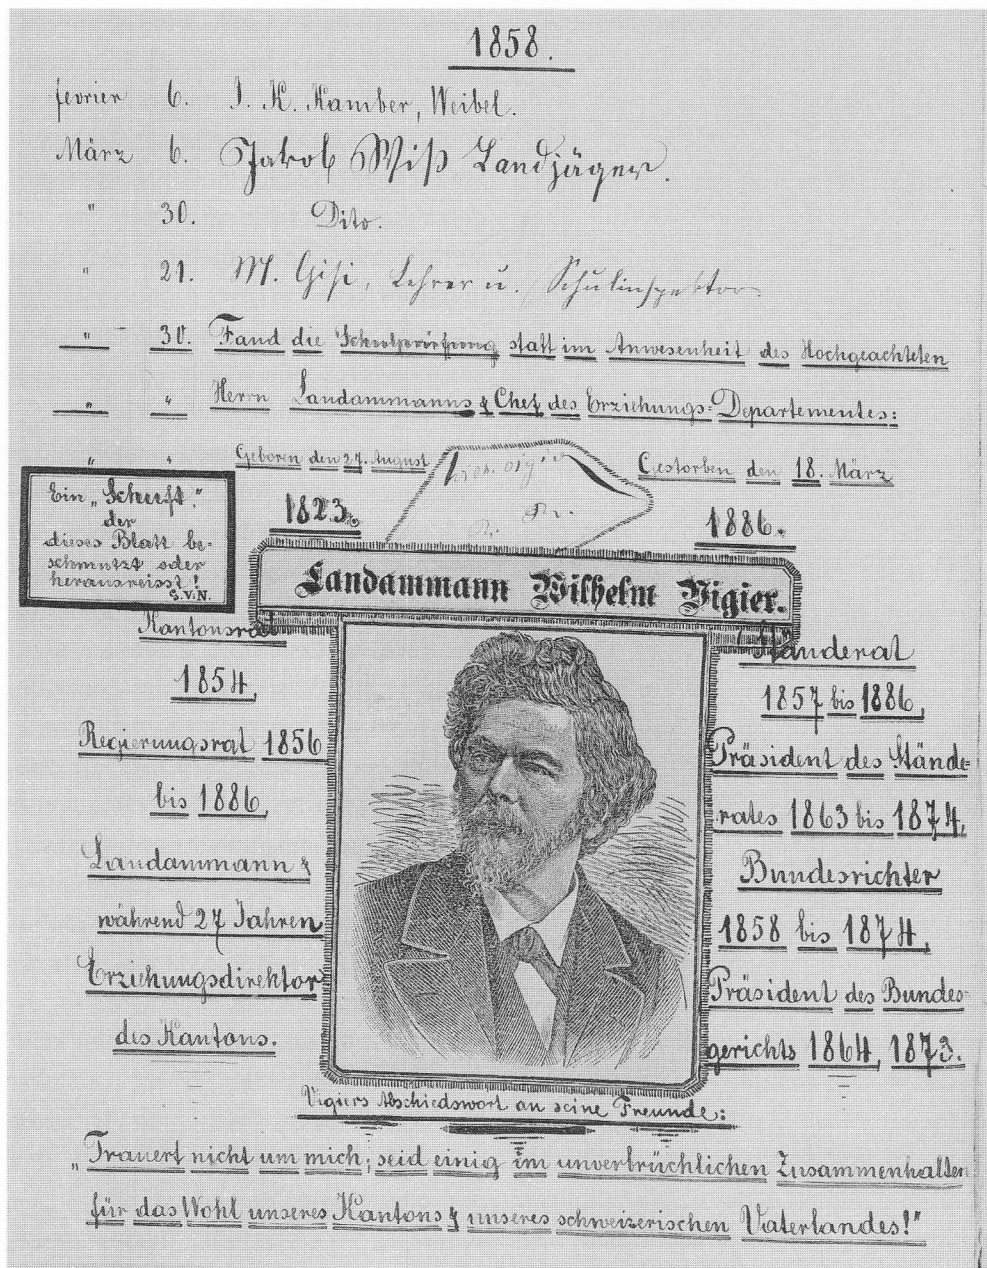 1858.
fevrier 6. J. K. Kamber, Weibel.
März 6. Jakob Wiß Landjäger.
" 30. Dito.
" 21. M. Gisi, Lehrer u. Schulinspektor
" 30. Fand die Schulprüfung statt im Anwesenheit des Hochgeachteten
" " Herrn Landammanns & Chef des Erziehungs=Departementes:
" " Geboren den 27. August
1823.
Gestorben den 18. März
1886.
Ein „Schuft"
der
dieses Blatt be=
schmutzt oder
herausreisst!
S.V.N.
Landammann Wilhelm Vigier.
Kantonsrat
1854,
Regierungsrat 1856
bis 1886,
Landammann &
während 27 Jahren
Erziehungsdirektor
des Kantons.
Ständerat
1857 bis 1886,
Präsident des Stände=
rates 1863 bis 1874,
Bundesrichter
1858 bis 1874,
Präsident des Bundes=
gerichts 1864, 1873.
Vigiers Abschiedswort an seine Freunde:
„Trauert nicht um mich; seid einig im unverbrüchlichen Zusammenhalten
für das Wohl unseres Kantons & unseres schweizerischen Vaterlandes!"